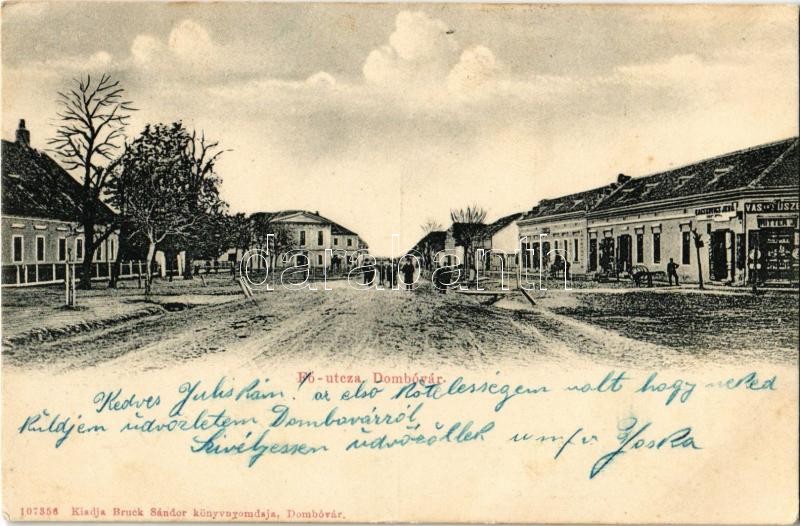 VAS
Fő-utcza Dombóvár.
Kedves Juliskám! az első kötelességem volt hogy neked
küldjem üdvözletem Dombovárról
Szivélyessen üdvözöllek Joska
107356 Kiadja Bruck Sándor könyvnyomdája, Dombóvár.
darabanth